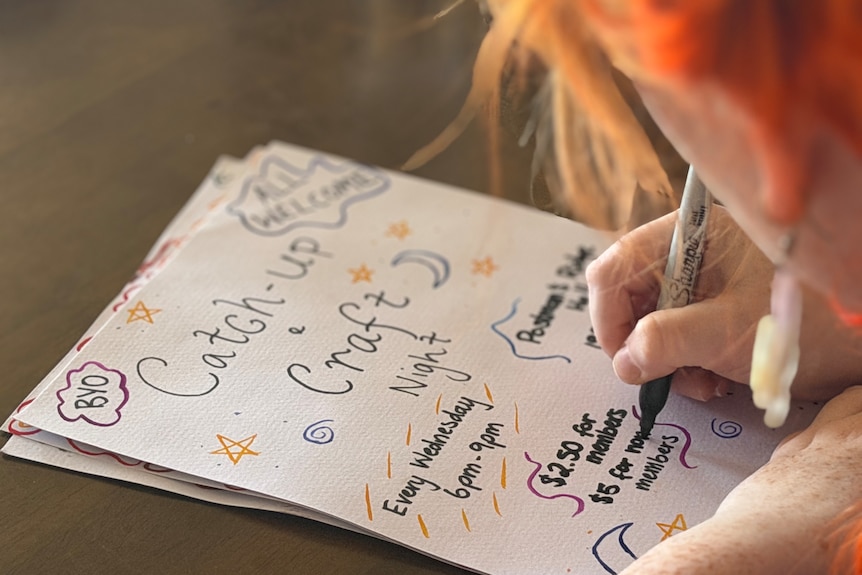 ALL
WELCOME
Catch-up
&
Craft
Night
BYO
Every Wednesday
6pm-9pm
Postman's Ridge
Ha
$2.50 for
members
$5 for non
members
Sharpie